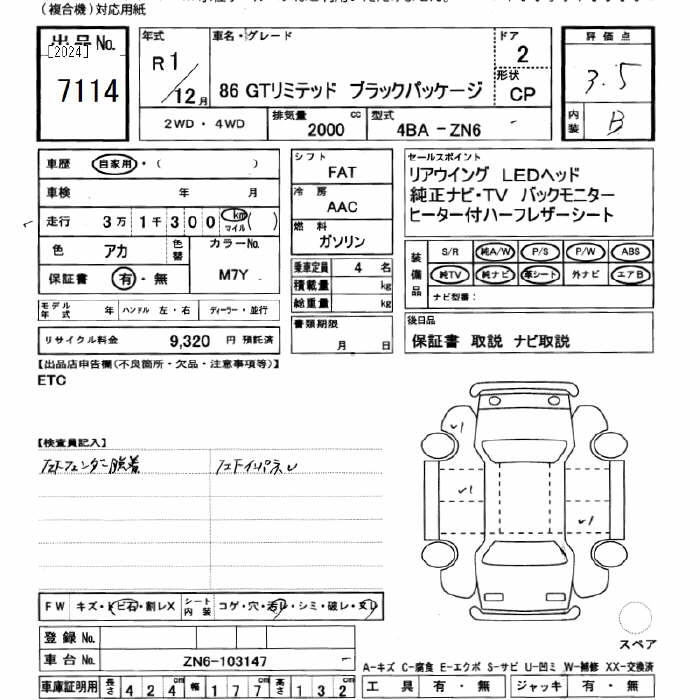 （複合機）対応用紙
出品No.
[2024]
7114
年式
R1/12月
車名・グレード
86 GTリミテッド ブラックパッケージ
ドア
2
形状
CP
評価点
3.5
内装
B
2WD・4WD
排気量
2000 cc
型式
4BA-ZN6
車歴 自家用・( )
車検 年 月
走行 3万1千300 km マイル ( )
色 アカ
色替
カラーNo.
M7Y
保証書 有・無
モデル年式 年 ハンドル 左・右 ディーラー・並行
リサイクル料金 9,320 円 預託済
シフト
FAT
冷房
AAC
燃料
ガソリン
乗車定員 4 名
積載量 kg
総重量 kg
書類期限
月 日
セールスポイント
リアウイング LEDヘッド
純正ナビ・TV バックモニター
ヒーター付ハーフレザーシート
装備品
S/R 純A/W P/S P/W ABS
純TV 純ナビ 革シート 外ナビ エアB
ナビ型番：
後日品
保証書 取説 ナビ取説
【出品店申告欄(不良箇所・欠品・注意事項等)】
ETC
【検査員記入】
✓1
✓1
✓1
FW キズ・トビ石・割レX
シート内装 コゲ・穴・汚レ・シミ・破レ・スレ
登録No.
車台No. ZN6-103147
スペア
A-キズ C-腐食 E-エクボ S-サビ U-凹ミ W-補修 XX-交換済
車庫証明用 長さ 424cm 幅 177cm 高さ 132cm
工具 有・無 ジャッキ 有・無